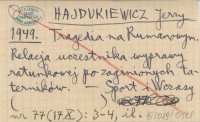 HAJDUKIEWICZ Jerzy
1949. Tragedia na Rumanowym.
Relacja uczestnika wyprawy
ratunkowej po zaginionych ta-
terników. — Sport i Wczasy
( )
nr 77 (17 X) : 3-4, il.